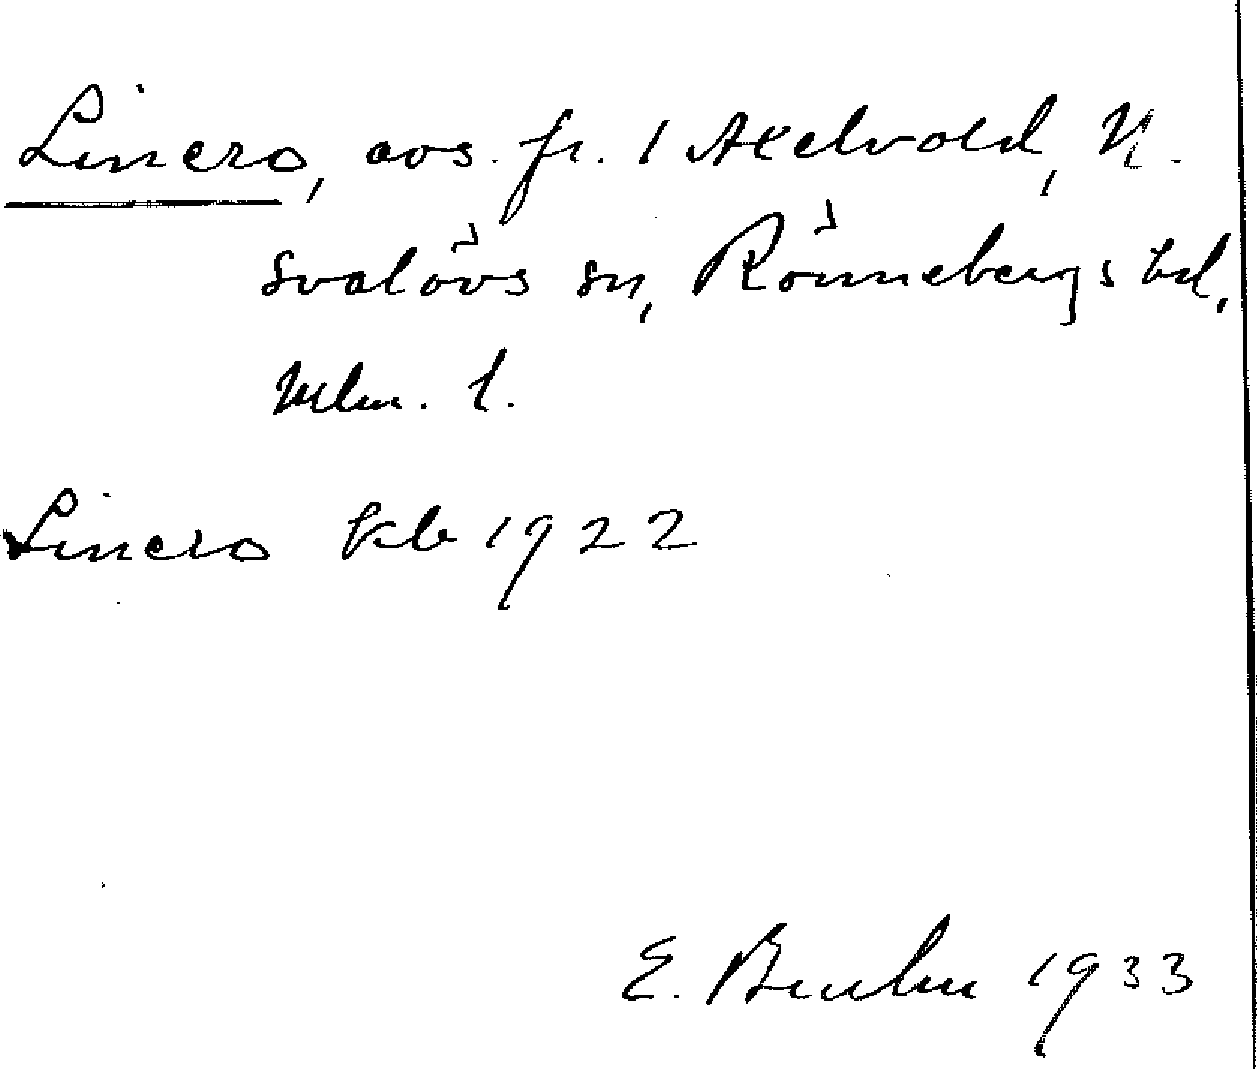 Linero, avs. fr. 1 Axelvold, N.
Svalövs sn, Rönnebergs hd,
Mlm. l.
Linero Kb 1922
E. 1933